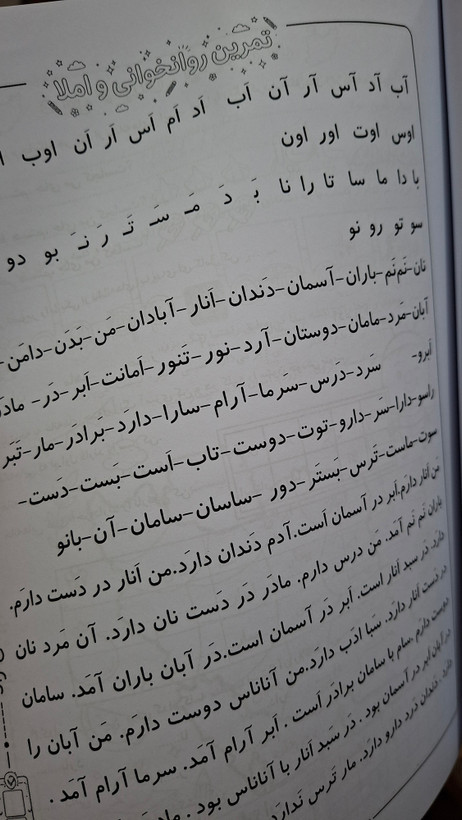 تمرین روانخوانی و املا
آب آد آس آر آن اَب اَد اَم اَس اَر اَن اوب
اوس اوت اور اون
با دا ما سا تا را نا بَـ دَ مَـ سَـ تَـ رَ نَـ بو دو
سو تو رو نو
نان-نَم‌نَم-باران-آسمان-دَندان-اَنار-آبادان-مَن-بَدَن-دامَن-
آبان-مَرد-مامان-دوستان-آرد-نور-تَنور-اَمانت-اَبر-دَر-
اَبرو- سَرد-دَرس-سَرما-آرام-سارا-دارَد-بَرادَر-مار-تَبَر
راسو-دارا-سَر-دارو-توت-دوست-تاب-اَست-بَست-دَست-
سوت-ماست-تَرس-بَستَر-دور-ساسان-سامان-آن-بانو
مَن اَنار دارَم.اَبر در آسمان اَست.آدم دَندان دارَد.من اَنار در دَست دارَم.
باران نَم نَم آمَد. مَن درس دارم. مادَر دَر دَست نان دارَد. آن مَرد نان
دارَد. دَر سبد اَنار است. اَبر دَر آسمان است.دَر آبان باران آمَد. سامان
دَر دَست اَنار دارَد. سَبا اَدَب دارَد.من آناناس دوست دارَم. مَن آبان را
دوست دارَم. سام با سامان برادَر اَست . اَبر آرام آمَد. سرما آرام آمَد .
دَر آبان اَبر در آسمان بود . دَر سَبد اَنار با آناناس بود .
دَندان دَرد دارو دارَد. مار تَرس نَدارَد